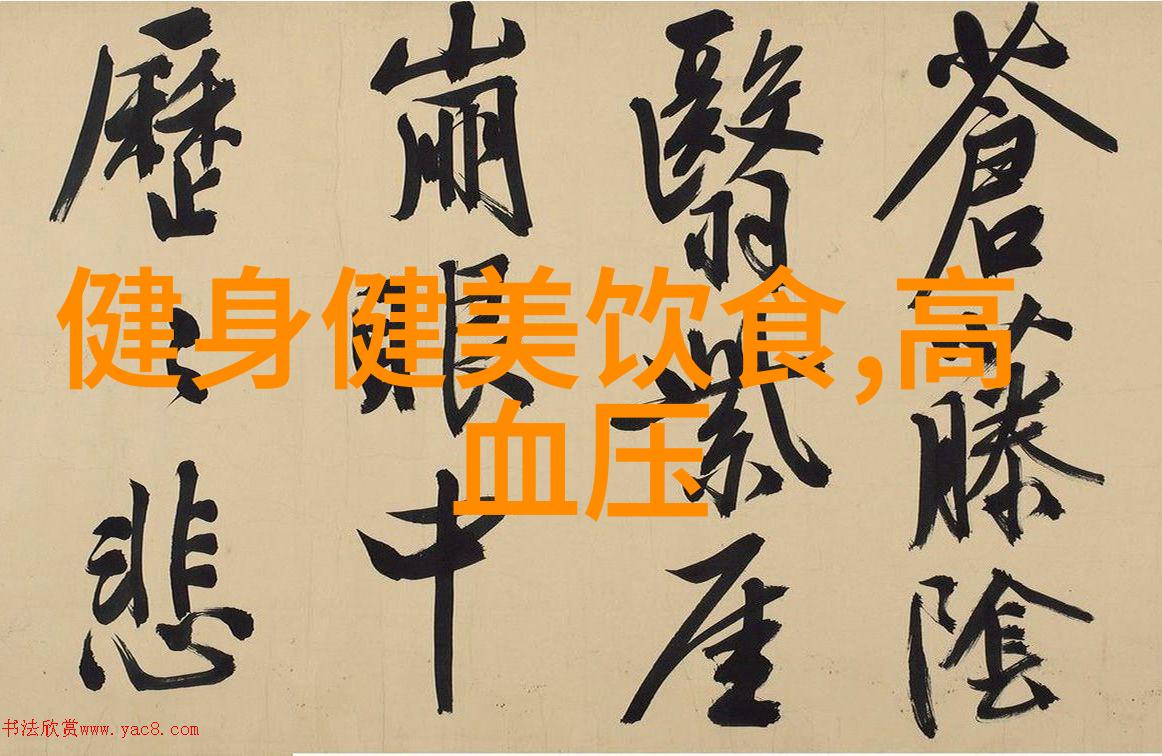 健身健美饮食,高
血压
蒼藤陰
翳紫厓
崩眼中
歷々悲
书法欣赏www.yac8.com